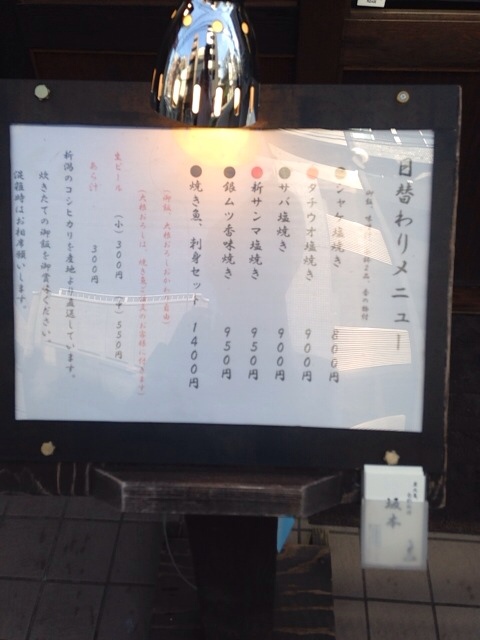 日替わりメニュー
シャケ塩焼き 800円
タチウオ塩焼き 900円
サバ塩焼き 900円
新サンマ塩焼き 950円
銀ムツ香味焼き 950円
焼き魚、刺身セット 1400円
(御飯、大根おろしおかわり自由)
(大根おろしは、焼き魚ご注文のお客様に付きます)
生ビール (小)300円 (中)550円
あら汁 300円
新潟のコシヒカリを産地より直送しています。
炊きたての御飯を御賞味ください。
混雑時はお相席願いします。
坂本